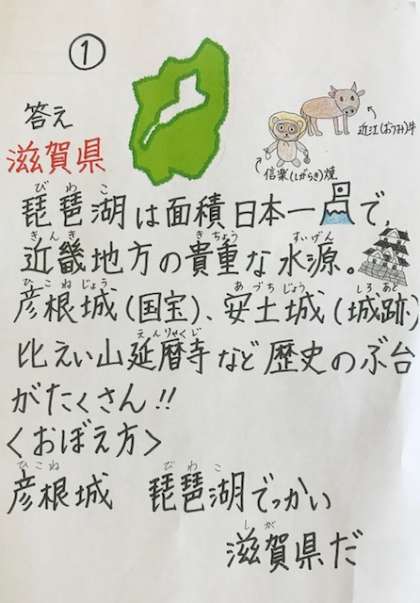 ①
答え
滋賀県
近江(おうみ)牛
信楽(しがらき)焼
びわこ
琵琶湖は面積日本一で、
きんき きちょう すいげん
近畿地方の貴重な水源。
ひこねじょう あづちじょう しろあと
彦根城(国宝)、安土城(城跡)
えんりゃくじ
比えい山延暦寺など歴史のぶ台
がたくさん!!
<おぼえ方>
ひこね びわこ
彦根城 琵琶湖でっかい
しが
滋賀県だ